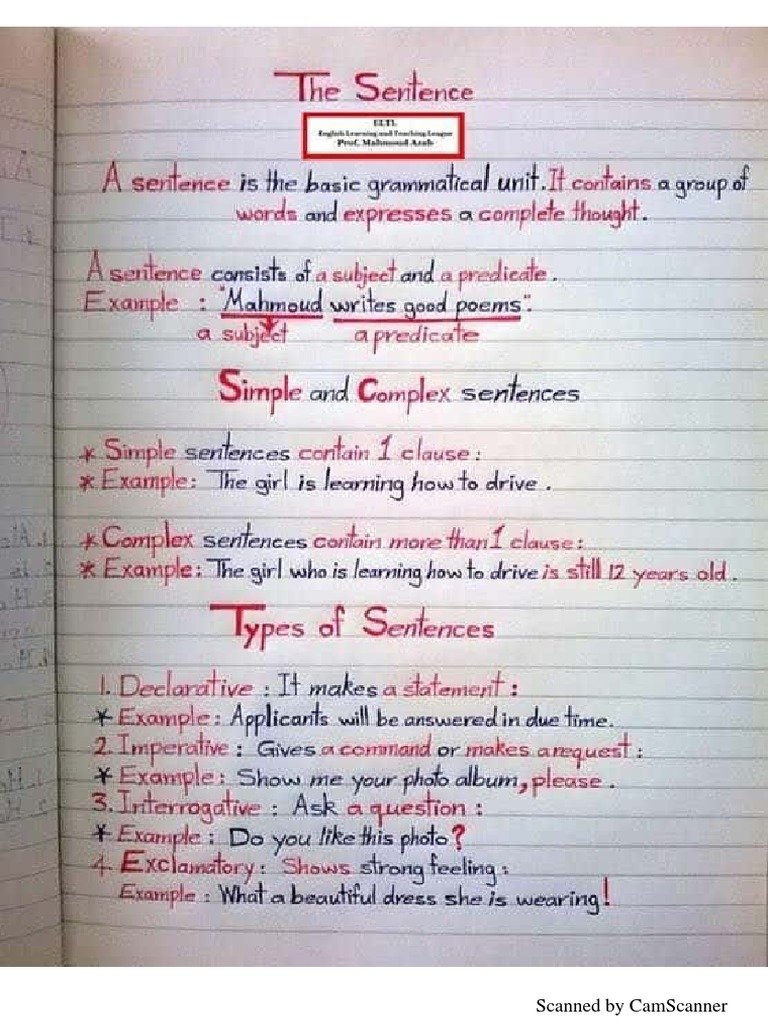 The Sentence
ELTL
English Learning and Teaching League
Prof. Mahmoud Arab
A sentence is the basic grammatical unit. It contains a group of
words and expresses a complete thought.
A sentence consists of a subject and a predicate.
Example : "Mahmoud writes good poems".
a subject a predicate
Simple and Complex sentences
* Simple sentences contain 1 clause:
* Example: The girl is learning how to drive.
* Complex sentences contain more than 1 clause:
* Example: The girl who is learning how to drive is still 12 years old.
Types of Sentences
1. Declarative : It makes a statement :
* Example : Applicants will be answered in due time.
2. Imperative : Gives a command or makes a request :
* Example : Show me your photo album, please.
3. Interrogative : Ask a question :
* Example : Do you like this photo?
4. Exclamatory : Shows strong feeling :
Example : What a beautiful dress she is wearing!
Scanned by CamScanner